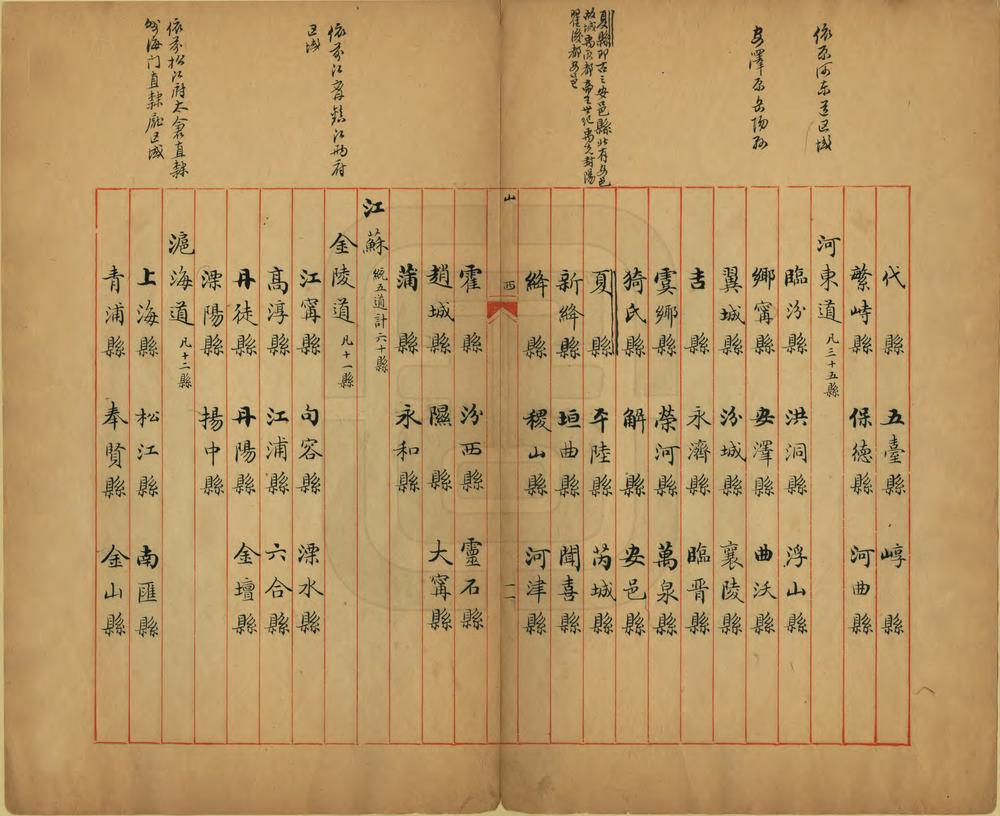 依原河東道區域
安澤原岳陽縣
夏縣即古之安邑縣北有安邑
故城禹所都帝王世紀禹先封陽
翟後都安邑
依前江寧鎮江兩府
區域
依前松江府太倉直隸
州海门直隸廳區域
代縣 五臺縣 崞縣
繁峙縣 保德縣 河曲縣
河東道 凡三十五縣
臨汾縣 洪洞縣 浮山縣
鄉寧縣 安澤縣 曲沃縣
翼城縣 汾城縣 襄陵縣
吉縣 永濟縣 臨晋縣
虞鄉縣 榮河縣 萬泉縣
猗氏縣 解縣 安邑縣
夏縣 平陸縣 芮城縣
新絳縣 垣曲縣 聞喜縣
絳縣 稷山縣 河津縣
山西 十一
霍縣 汾西縣 靈石縣
趙城縣 隰縣 大寧縣
蒲縣 永和縣
江蘇 統五道計六十縣
金陵道 凡十一縣
江寧縣 句容縣 溧水縣
高淳縣 江浦縣 六合縣
丹徒縣 丹陽縣 金壇縣
溧陽縣 揚中縣
滬海道 凡十二縣
上海縣 松江縣 南匯縣
青浦縣 奉賢縣 金山縣